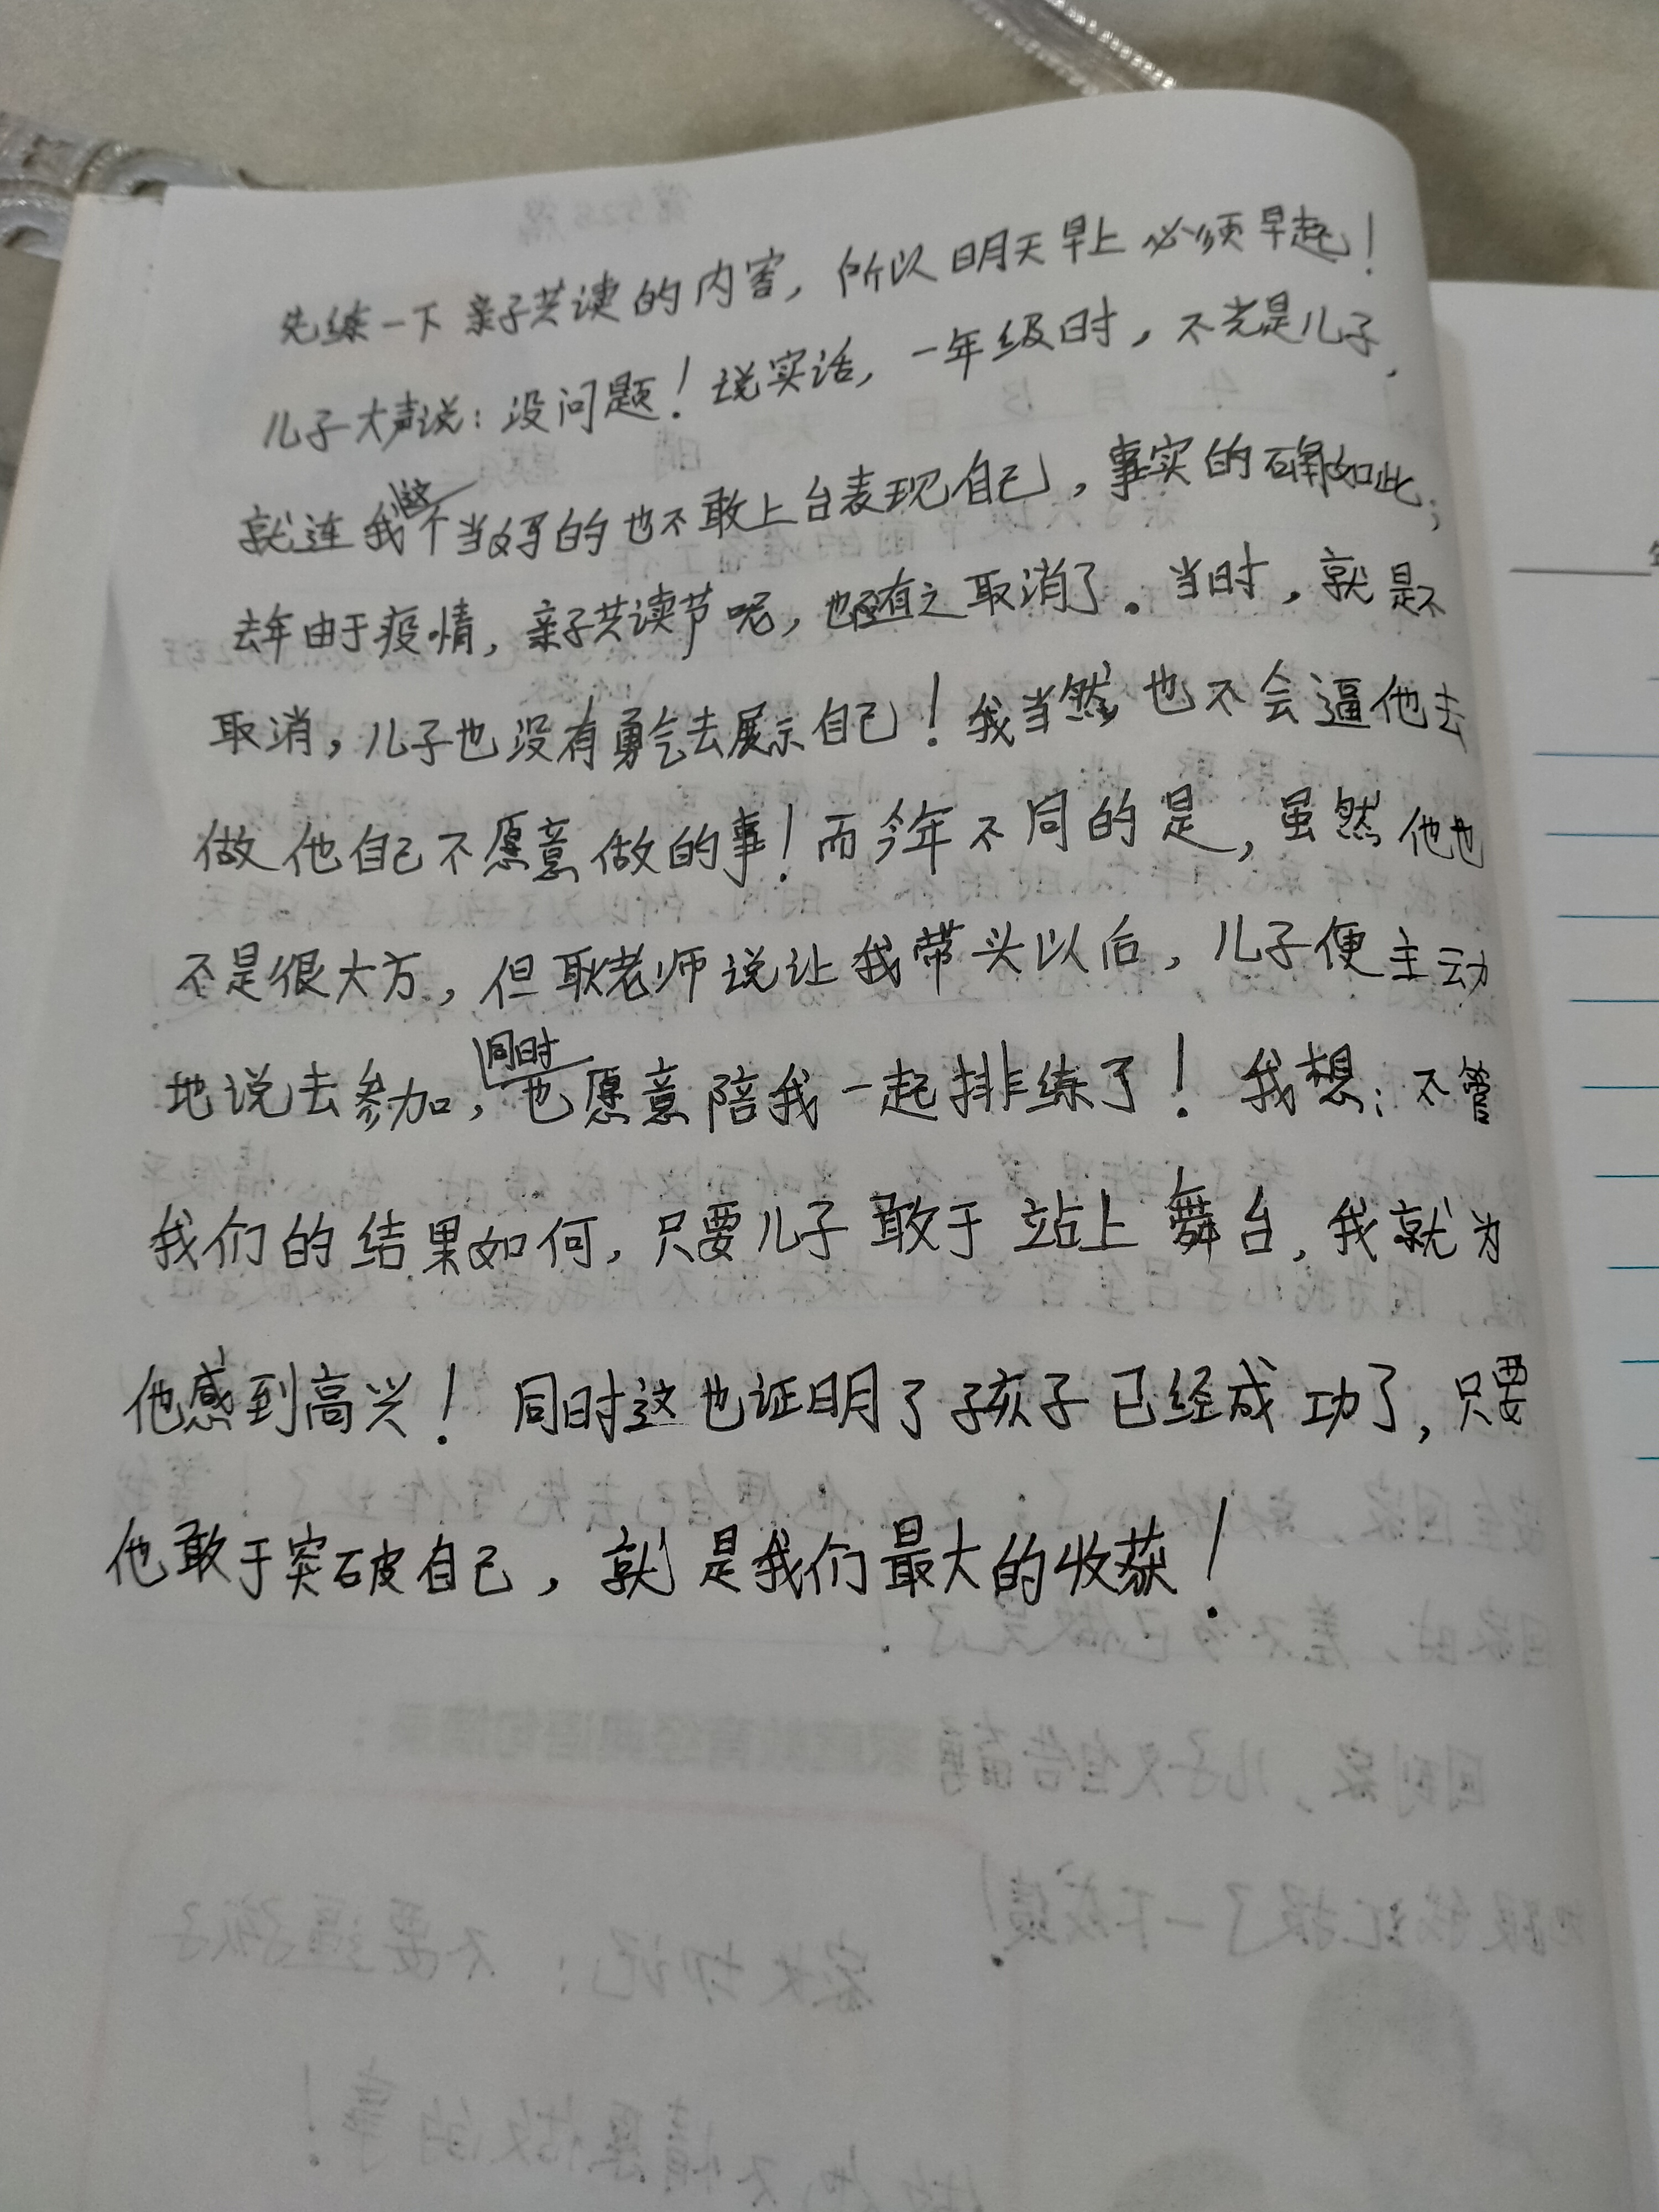 先练一下亲子共读的内容，所以明天早上必须早起！
儿子大声说：没问题！说实话，一年级时，不光是儿子，
就连我这个当妈的也不敢上台表现自己，事实的确如此；
去年由于疫情，亲子共读节呢，也随之取消了。当时，就是不
取消，儿子也没有勇气去展示自己！我当然也不会逼他去
做他自己不愿意做的事！而今年不同的是，虽然他也
不是很大方，但耿老师说让我带头以后，儿子便主动
地说去参加，同时也愿意陪我一起排练了！我想：不管
我们的结果如何，只要儿子敢于站上舞台，我就为
他感到高兴！同时这也证明了孩子已经成功了，只要
他敢于突破自己，就是我们最大的收获！